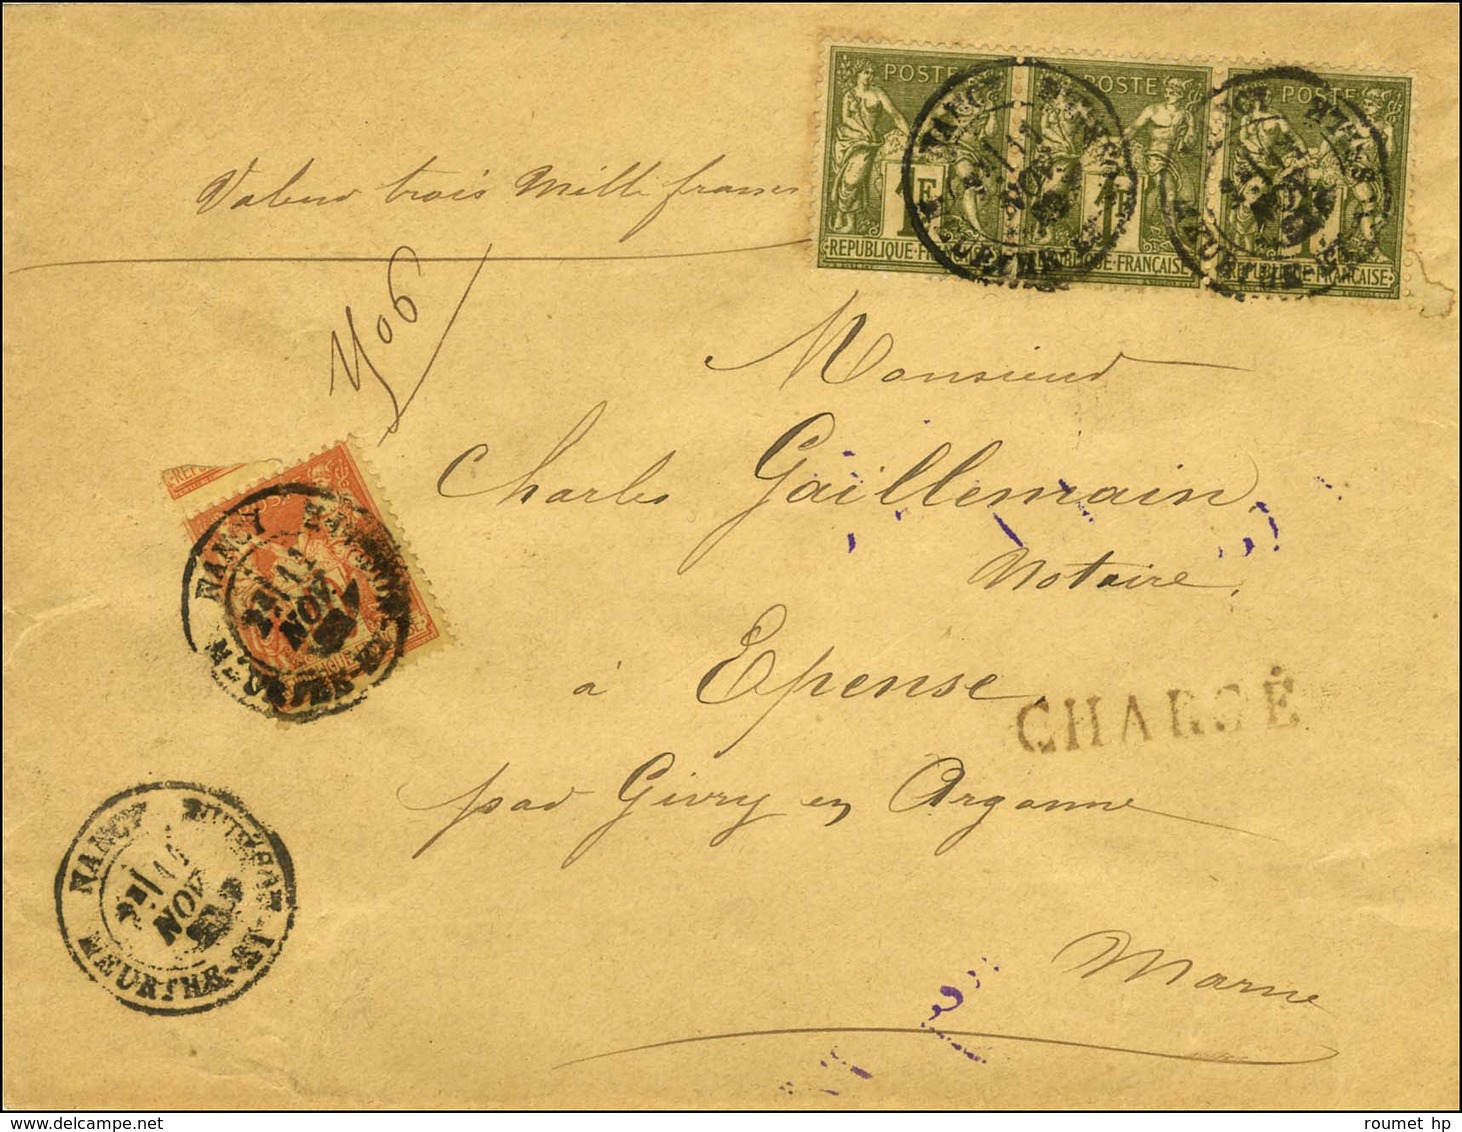 POSTE POSTE POSTE
1F 1F 1
REPUBLIQUE FRANÇAISE REPUBLIQUE FRANÇAISE REPUBLIQUE FRANÇAISE
Valeur trois Mille francs
Monsieur
Charles Gaillemain
Notaire,
à Epense,
CHARGÉ
par Givry en Argonne
Marne
NANCY
NOV
MEURTHE-ET-
NANCY
NOV
MEURTHE-ET-
roumet hp